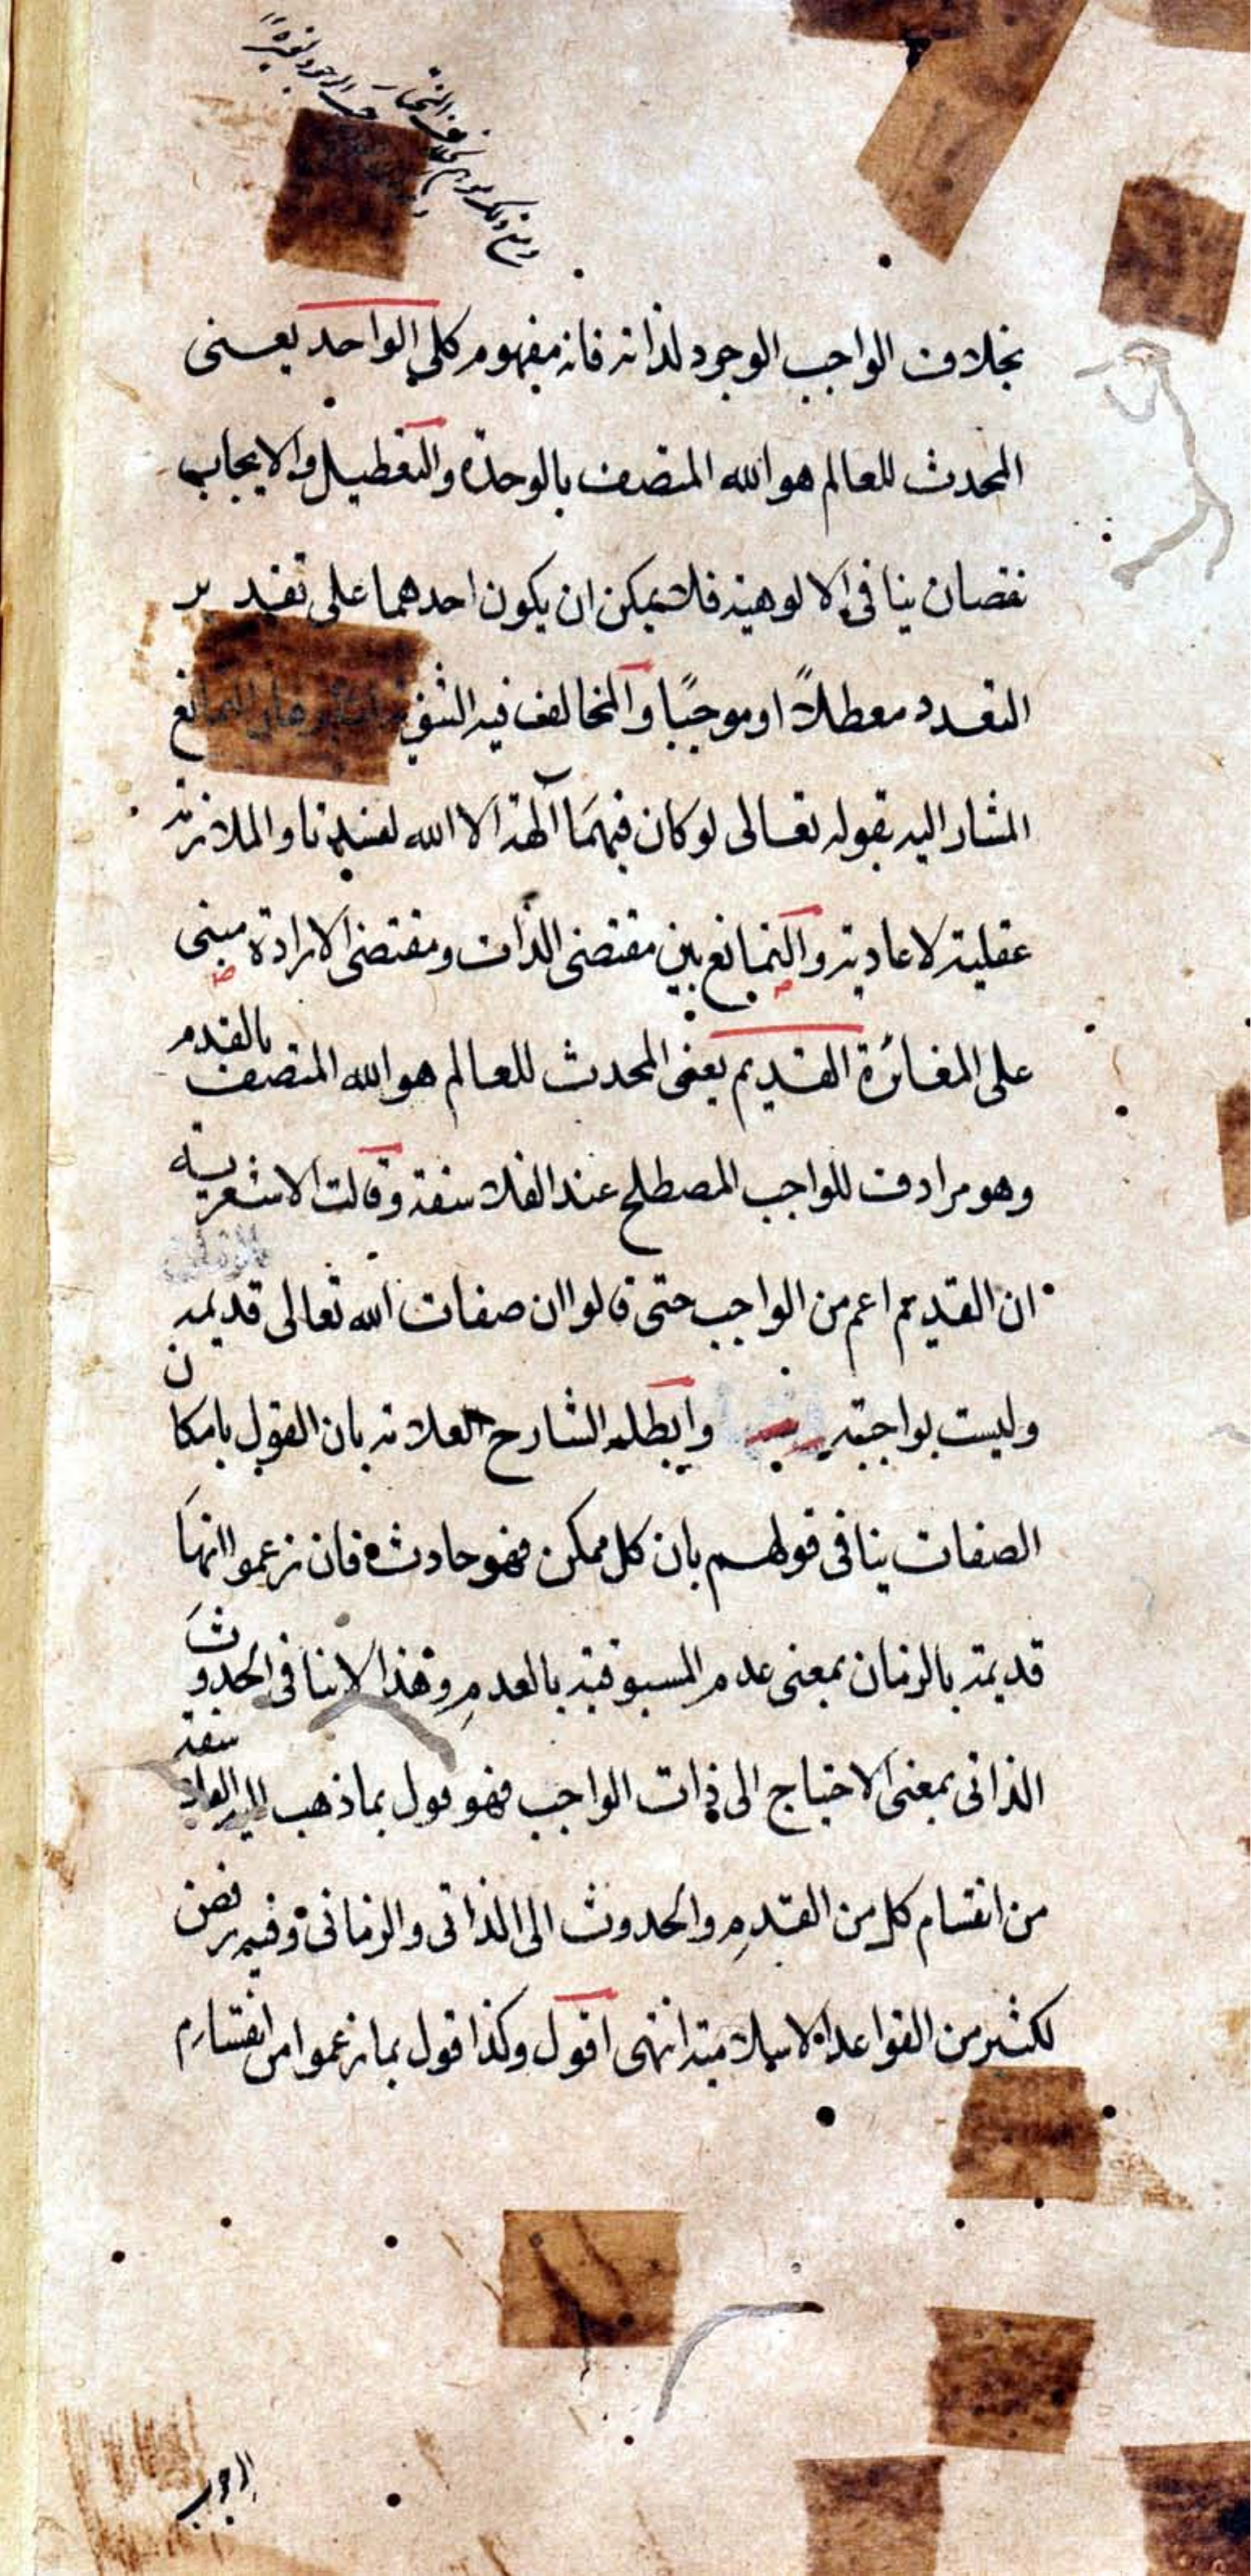 بخلاف الواجب الوجود لذاته فانه مفهوم كلي الواحد يعنى
المحدث للعالم هو الله المتصف بالوحدة والتعطيل والايجاب
نقصان ينافى الالوهية فلا يمكن ان يكون احدهما على تقدير
التعدد معطلاً او موجبًا والمخالف فيه الثنوية برهان التمانع
المشار اليه بقوله تعالى لو كان فيهمَا آلهة الا الله لفسدتا والملازمة
عقلية لا عادية والتمانع بين مقتضى الذات ومقتضى الارادة مبنى
على المغائرة القديم يعنى المحدث للعالم هو الله المتصف بالقدم
وهو مرادف للواجب المصطلح عند الفلاسفة وقالت الاشعرية
ان القديم اعم من الواجب حتى قالوا ان صفات الله تعالى قديمة
وليست بواجبة وابطله الشارح العلامة بان القول بامكان
الصفات ينافى قولهم بان كل ممكن فهو حادث فان زعموا انهَا
قديمة بالزمان بمعنى عدم المسبوقية بالعدمِ وهذا لا ينافى الحدوث
الذاتى بمعنى الاحتياج الى ذات الواجب فهو قول بما ذهب اليه الفلاسفة
من انقسام كل من القدمِ والحدوث الى الذاتى والزمانى وفيه رفض
لكثير من القواعد الاسلامية انتهى اقول وكذا قول بما زعموا من انقسام